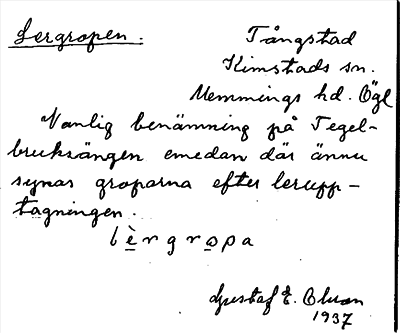 Lergropen.
Tångstad
Kimstads sn.
Memmings hd. Ögl
Vanlig benämning på Tegel-
bruksängen emedan där ännu
synas groparna efter lerupp-
tagningen.
lèrgropa
Gustaf E. Olsson
1937